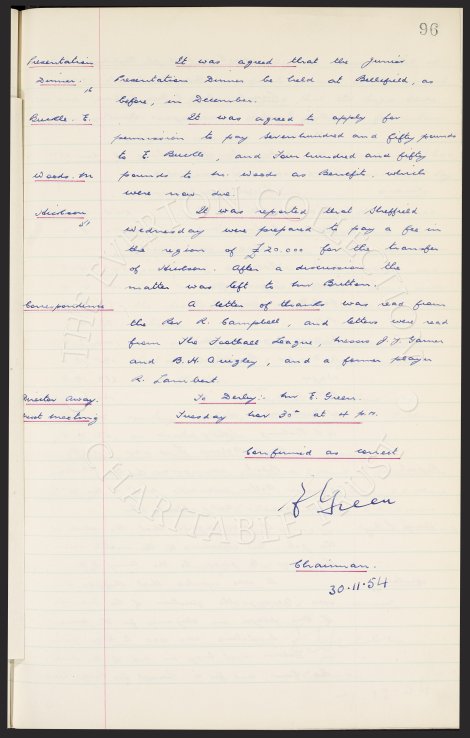 96
Presentation It was agreed that the junior
Dinner. Presentation Dinner be held at Bellefield, as
16 before, in December.
Buckle. E. It was agreed to apply for
permission to pay seven hundred and fifty pounds
to E. Buckle, and Four hundred and fifty
Woods. M pounds to Mr. Woods as Benefit, which
were now due.
Hickson It was reported that Sheffield
51 Wednesday were prepared to pay a fee in
the region of £20.000 for the transfer
of Hickson. After a discussion the
matter was left to Mr Britton.
Correspondence A letter of thanks was read from
the Rev R. Campbell, and letters were read
from The Football League, Messrs J. T. Garner
and B. H. Quigley, and a former player
R. Lambert
Director Away. To Derby:- Mr E. Green.
Next Meeting Tuesday Nov 30th at 4 p.m.
Confirmed as correct,
E Green
Chairman.
30.11.54
THE EVERTON COLLECTION
CHARITABLE TRUST